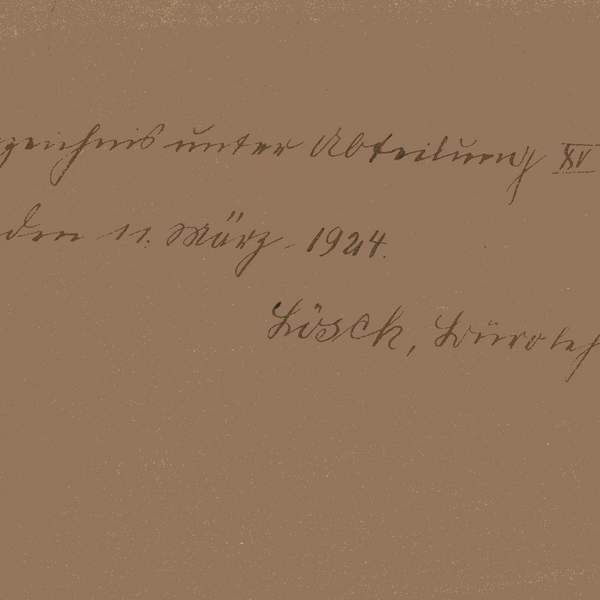 zeichnis unter Abteilung XV
den 11. März 1924.
Lösch,